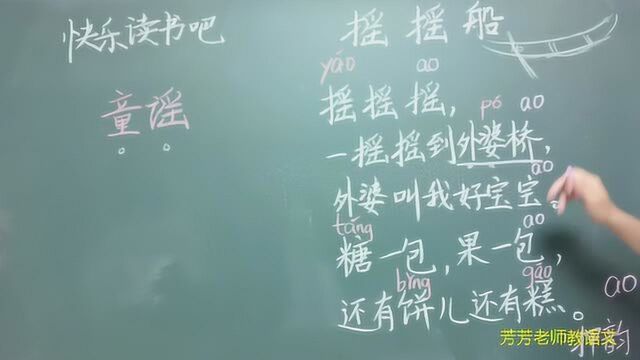 快乐读书吧
童谣
摇摇船
yáo ao
摇摇摇，
pó ao
一摇摇到外婆桥，
ao
外婆叫我好宝宝。
táng ao
糖一包，果一包，
bǐng gāo
还有饼儿还有糕。
ao
押韵
芳芳老师教语文